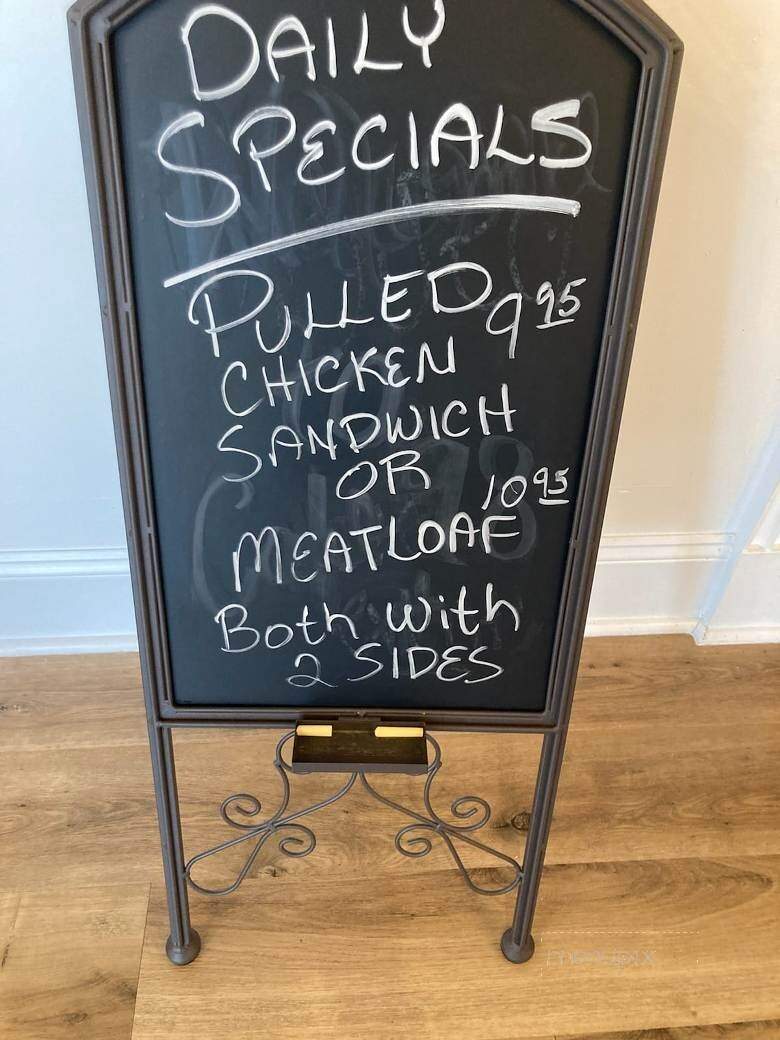 DAILY
SPECIALS
PULLED 9 95
CHICKEN
SANDWICH
OR
MEATLOAF 10 95
Both with
2 SIDES
menupix